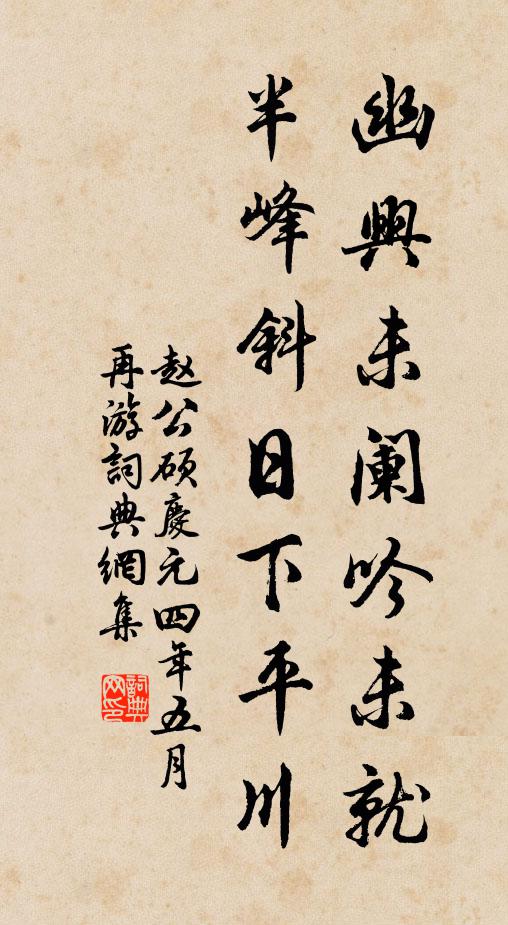 幽興未闌吟未就
半峰斜日下平川
赵公硕慶元四年五月
再游詞典網集
詞典网印